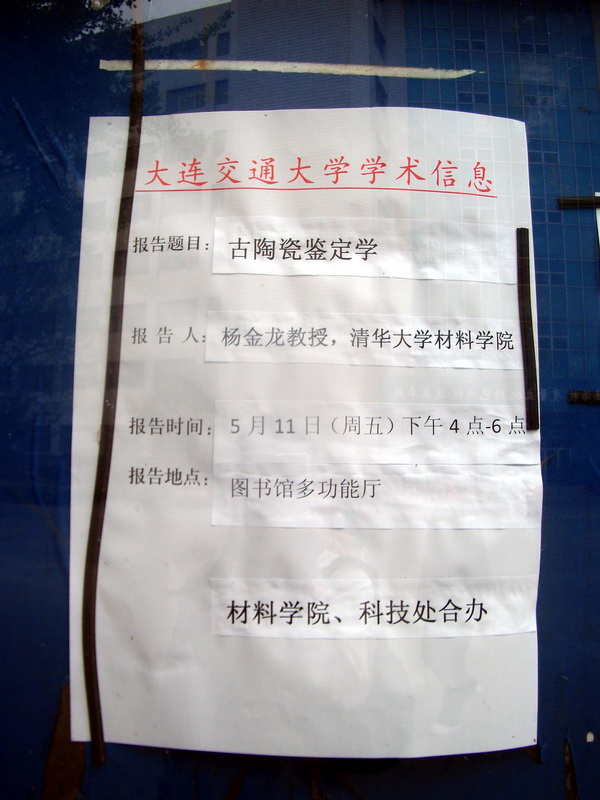 大连交通大学学术信息
报告题目：古陶瓷鉴定学
报 告 人：杨金龙教授，清华大学材料学院
报告时间：5月11日（周五）下午4点-6点
报告地点：图书馆多功能厅
材料学院、科技处合办